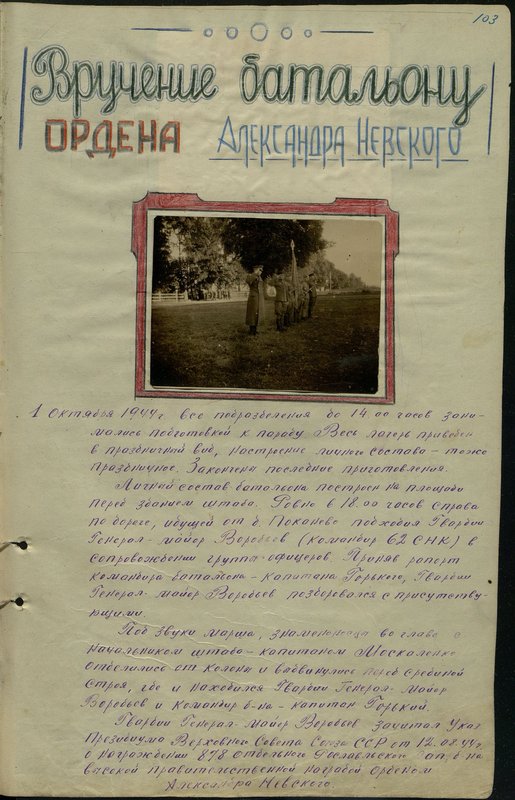 103
Вручение батальону
ОРДЕНА АЛЕКСАНДРА НЕВСКОГО
1 Октября 1944г. все подразделения до 14.00 часов зани-
мались подготовкой к параду. Весь лагерь приведен
в праздничный вид, настроение личного состава - тоже
праздничное. Закончены последние приготовления.
Личный состав батальона построен на площади
перед зданием штаба. Ровно в 18.00 часов справа
по дороге, идущей от д. подходил Гвардии
Генерал-майор Воробьев (командир 62 СНК) в
сопровождении группы офицеров. Приняв рапорт
командира батальона - капитана Горького, Гвардии
Генерал-майор Воробьев поздоровался с присутству-
ющими.
Под звуки марша, знаменосцы во главе с
начальником штаба - капитаном Москаленко
отделились от колонн и выдвинулись перед срединой
строя, где и находился Гвардии Генерал-майор
Воробьев и командир б-на - капитан Горький.
Гвардии Генерал-майор Воробьев зачитал Указ
Президиума Верховного Совета Союза ССР от 12.08.44г.
о награждении 878 отдельного б-на
высокой правительственной наградой орденом
Александра Невского.